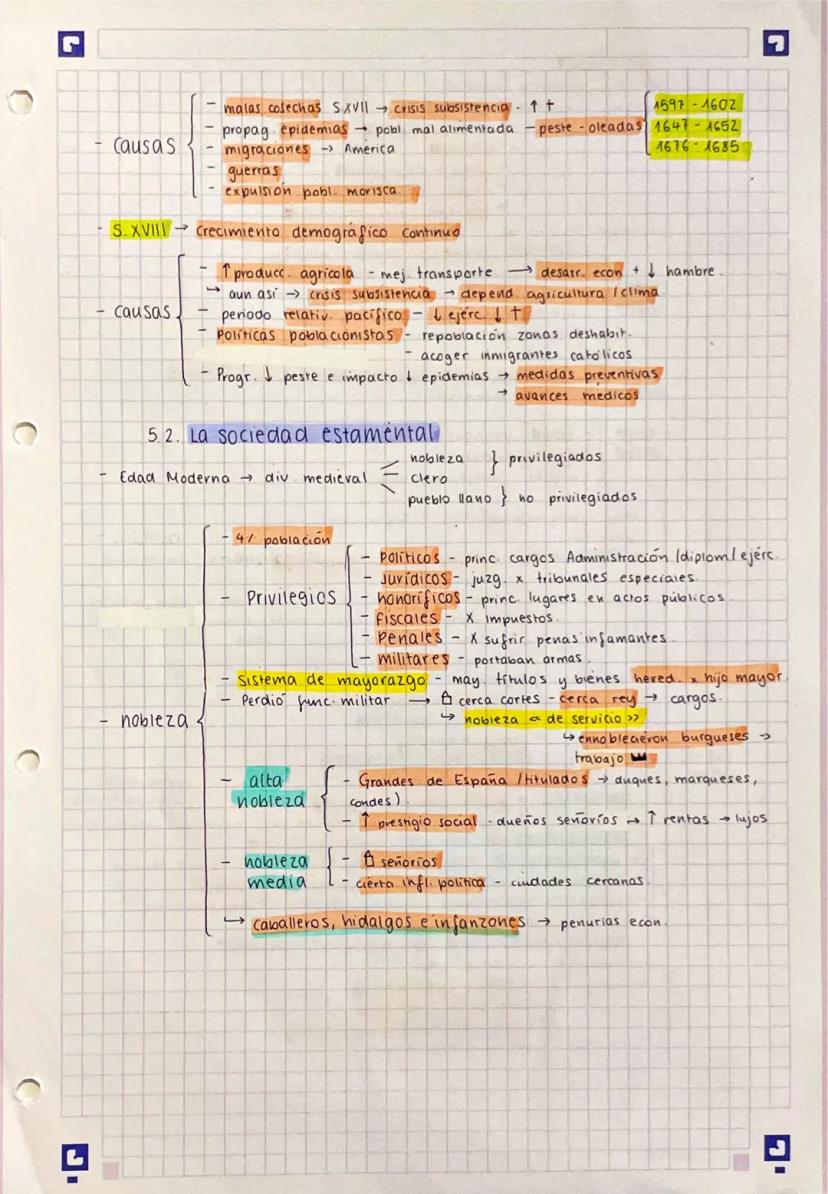 - malas cosechas S.XVII → crisis subsistencia. ↑ † 1597 - 1602
- propag. epidemias → pobl. mal alimentada - peste - oleadas 1647 - 1652
- causas - migraciones → América 1676 - 1685
- guerras
- expulsión pobl. morisca.
- S. XVIII → crecimiento demográfico continuo
- ↑ producc. agrícola - mej. transporte → desarr. econ + ↓ hambre.
↳ aun así → crisis subsistencia → depend. agricultura / clima
- causas - periodo relativ. pacífico - ↓ ejérc. ↓ †
- Políticas poblacionistas - repoblación zonas deshabit.
- acoger inmigrantes católicos
- Progr. ↓ peste e impacto ↓ epidemias → medidas preventivas
→ avances médicos
5.2. La sociedad estamental
- Edad Moderna → div. medieval nobleza } privilegiados
clero
pueblo llano } no privilegiados
- 4% población
- Privilegios - Políticos - princ. cargos Administración / diplom / ejérc.
- Jurídicos - juzg. x tribunales especiales.
- honoríficos - princ. lugares en actos públicos.
- fiscales - X impuestos.
- Penales - X sufrir penas infamantes.
- militares - portaban armas.
- Sistema de mayorazgo - may. títulos y bienes hered. x hijo mayor.
- nobleza - Perdió func. militar → cerca cortes - cerca rey → cargos.
↳ nobleza « de servicio »
↳ ennoblecieron burgueses →
trabajo
- alta nobleza - Grandes de España / titulados → duques, marqueses,
condes).
- ↑ prestigio social - dueños señoríos → ↑ rentas → lujos
- nobleza media - señoríos
- cierta infl. política - ciudades cercanas.
↳ caballeros, hidalgos e infanzones → penurias econ.